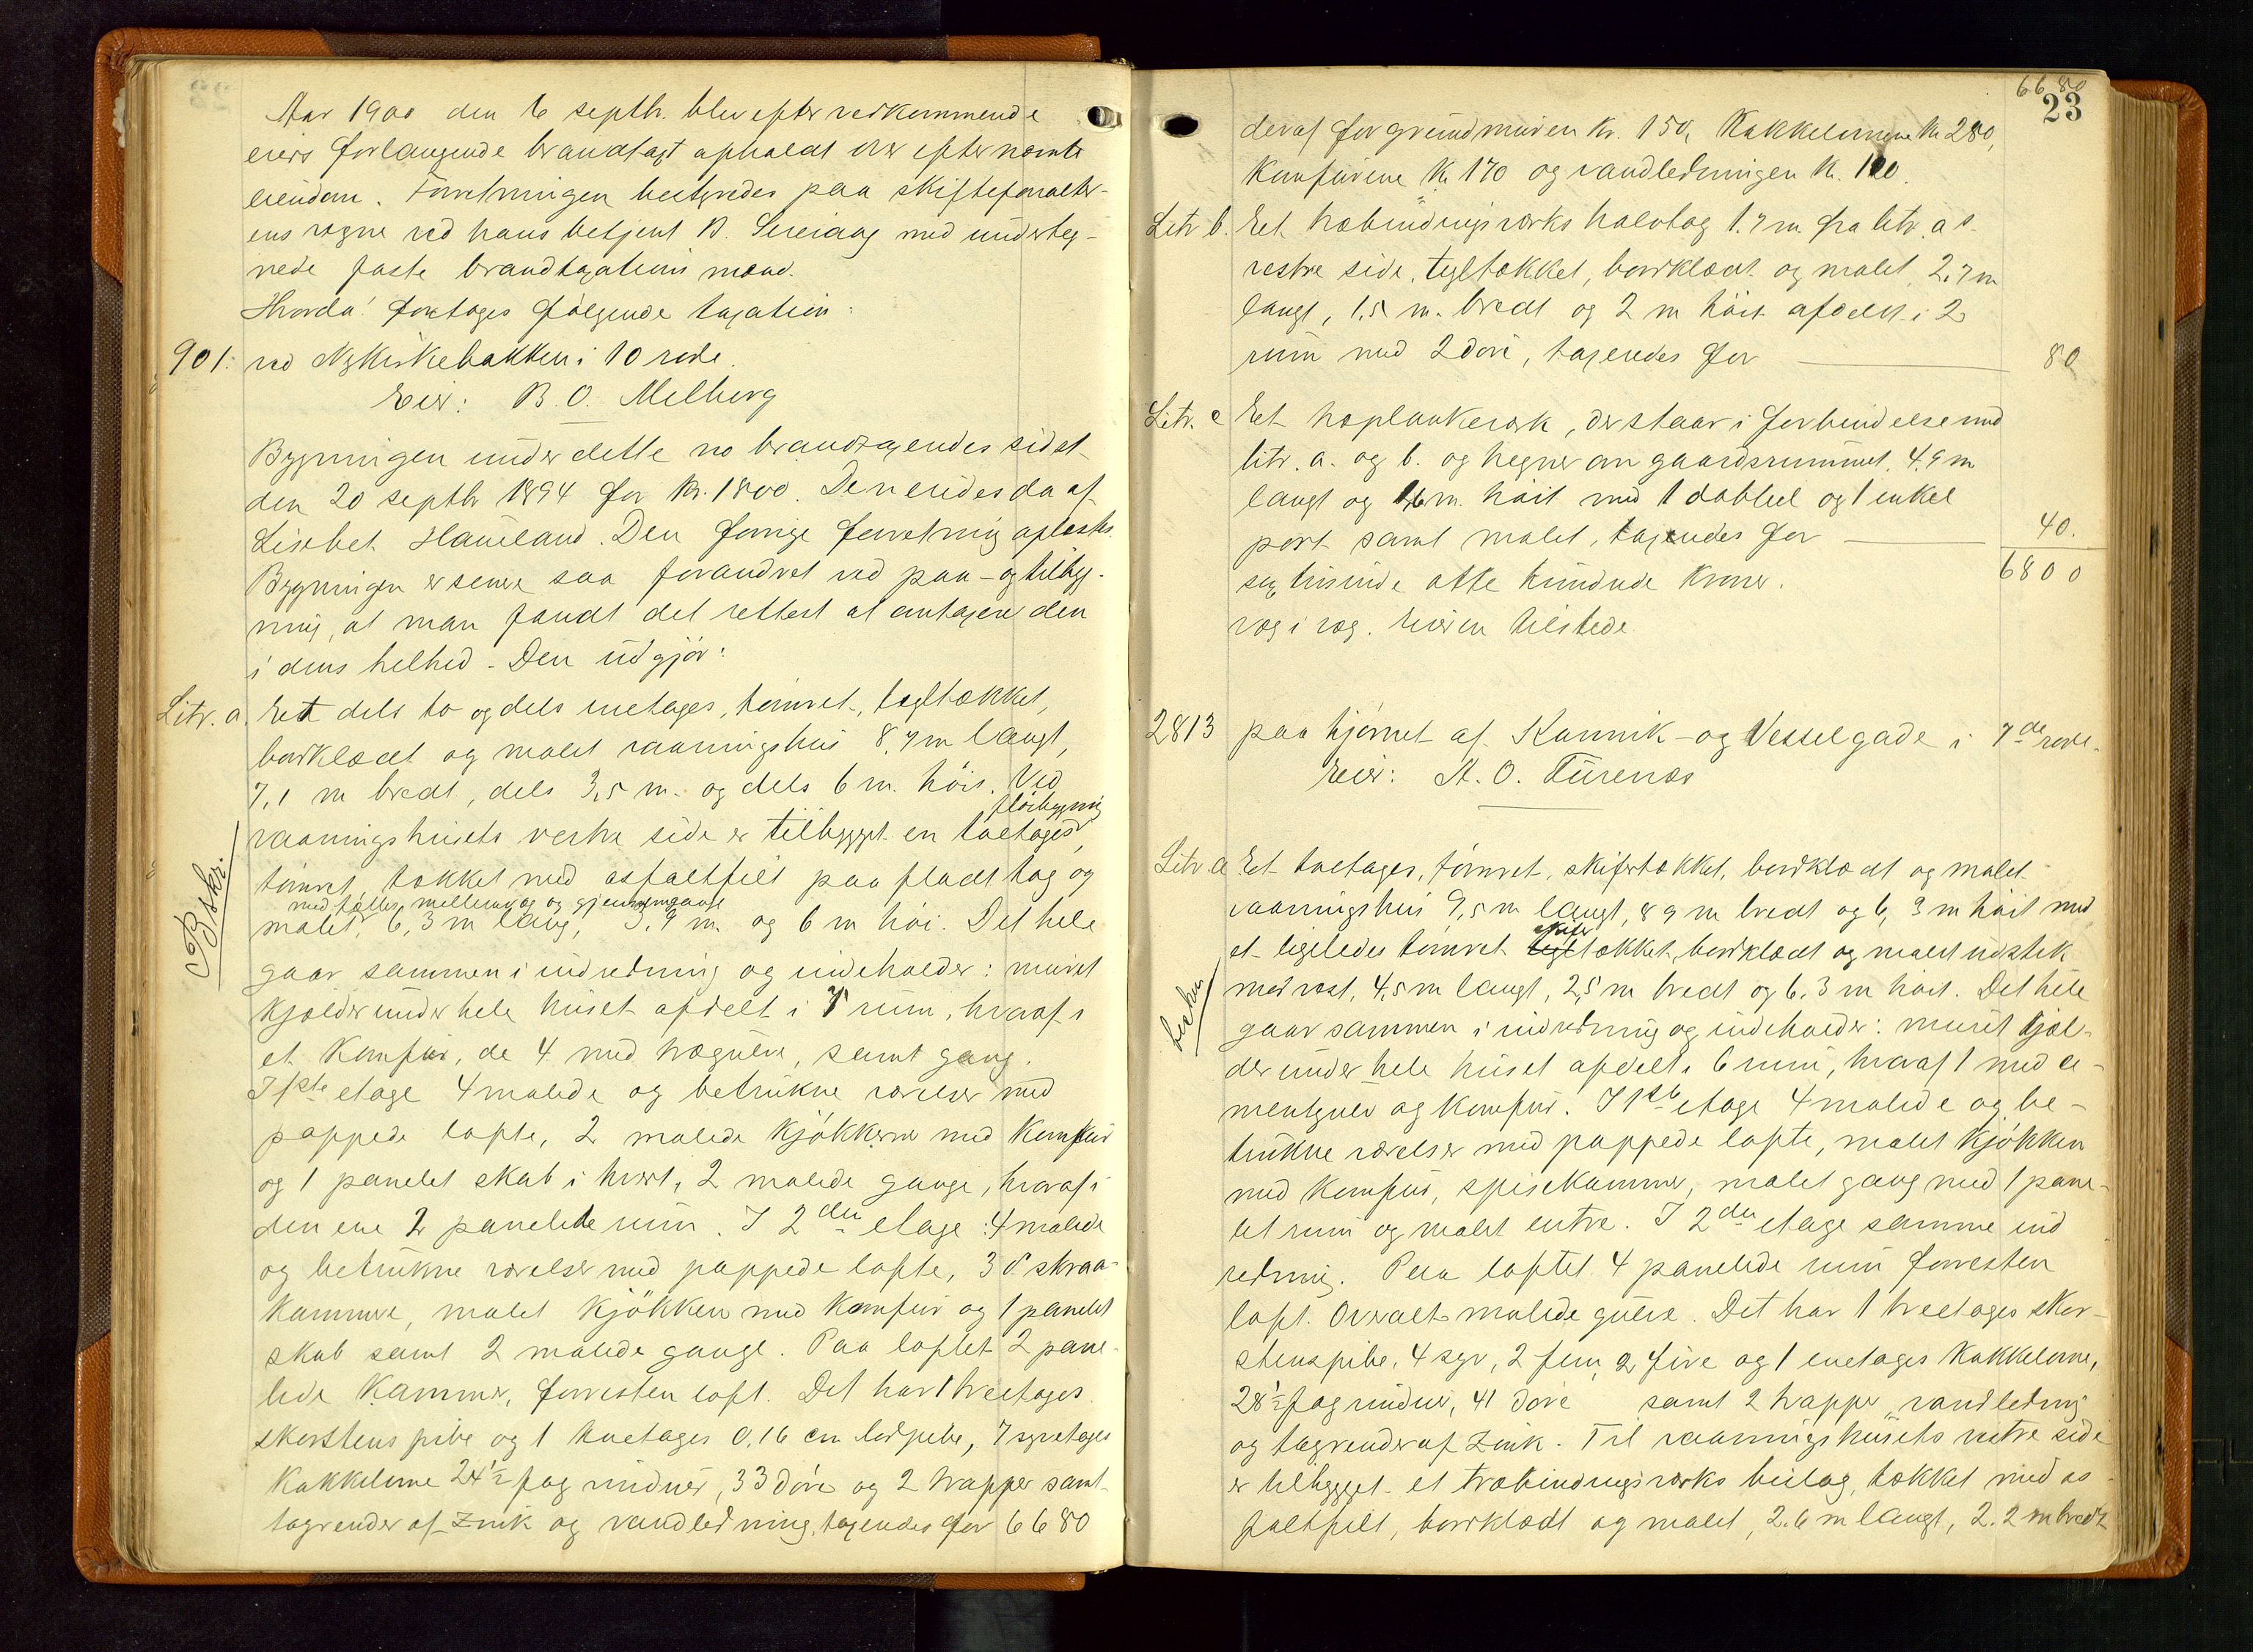 Aar 1900 den 6 septbr. blev efter vedkommende
eiers forlangende brandtaxt afholdt over efternævnte
eiendom. Forretningen bestyredes paa skifteforvalter-
ens vegne ved hans betjent B. Sereiaag med underteg-
nede faste brandtaxations mænd.
Hvorda! foretoges følgende taxation:
901: ved Nykirkebakken i 10 rode.
Eier: B. O. Melberg
Bygningen under dette no brandtaxeredes sidst
den 20 septbr 1894 for Kr. 1800. Den eiedes da af
Lisebet Haueland. Den forrige forretning aflæstes.
Bygningen er senere saa forandret ved paa- og tilbyg-
ning, at man fandt det rettest at omtaxere den
i dens helhed. Den udgjør:
Litr. a. Et dels to og dels enetages, tømret, tegltækket,
bordklædt og malet vaaningshus 8,7 m langt,
7,1 m bredt, dels 3,5 m. og dels 6 m. høit. Ved
vaaningshusets vestre side er tilbygget en toetages
fløibygning,
tømret, tækket med asfaltfilt paa fladt tag og
med fælles mellemvæg og gjennemgange
malet, 6,3 m lang, 3,9 m. og 6 m høi. Det hele
Beskr.
gaar sammen i indredning og indeholder: muret
kjælder under hele huset afdelt i 7 rum, hvoraf i
et komfur, de 4 med trægulve, samt gang.
I 1ste etage 4 malede og betrukne værelser med
pappede lofte, 2 malede kjøkkener med komfur
og 1 panelet skab i hvert, 2 malede gange, hvoraf i
den ene 2 panelede rum. I 2den etage: 4 malede
og betrukne værelser med pappede lofte, 3 d° skraa-
kammere, malet kjøkken med komfur og 1 panelet
skab samt 2 malede gange. Paa loftet 2 pane-
lede kammer, forresten loft. Det har 1 treetages
skorstenspibe og 1 toetages 0,16 cm lerpibe, 7 syvetages
kakkelovne 24½ fag vinduer, 33 døre og 2 trapper samt
tagrender af zink og vandledning, taxeredes for 6680
6680
23
deraf for grundmuren Kr. 150, Kakkelovnene Kr 280,
Komfurene Kr 170 og vandledningen Kr. 100.
Litr b. Et træbindingsværks halvtag 1.7 m fra litr. a s.
vestre side, tegltækket, bordklædt og malet, 2,7 m
langt, 1,5 m. bredt og 2 m høit afdelt i 2
rum med 2 døre, taxeredes for 80
Litr. c Et træplankeværk, der staar i forbindelse med
litr. a. og b. og hegner om gaardsrummet, 4,9 m
langt og 1,6 m. høit med 1 dobbel og 1 enkel
port samt malet, taxeredes for 40.
sex tusinde otte hundrede kroner. 6800
væg i væg. Eieren tilstede
2813 paa hjørnet af Kannik- og Vesselgade i 7de rode.
Eier: A. O. Türenæs
Litr. a Et toetages, tømret, skifertækket, bordklædt og malet
vaaningshus 9,5 m langt, 8,9 m bredt og 6,3 m høit med
skifer
et ligeledes tømret tegltækket, bordklædt og malet udstik
beskr.
mod vest, 4,5 m langt, 2,5 m bredt og 6,3 m høit. Det hele
gaar sammen i indredning og indeholder: muret kjæl-
der under hele huset afdelt i 6 rum, hvoraf 1 med ce-
mentgulv og komfur. I 1ste etage 4 malede og be-
trukne værelser med pappede lofte, malet kjøkken
med komfur, spisekammer, malet gang med 1 pane-
let rum og malet entre. I 2den etage samme ind
redning. Paa loftet 4 panelede rum forresten
loft. Overalt malede gulve. Det har 1 treetages skor-
stenspibe, 4 syv, 2 fem, 2 fire og 1 enetages kakkelovne,
28½ fag vinduer, 41 døre samt 2 trapper vandledning
og tagrender af zink. Til vaaningshusets vestre side
er tilbygget et træbindingsværks beitag, tækket med as-
faltfilt, bordklædt og malet, 2.6 m langt, 2.2 m bredt